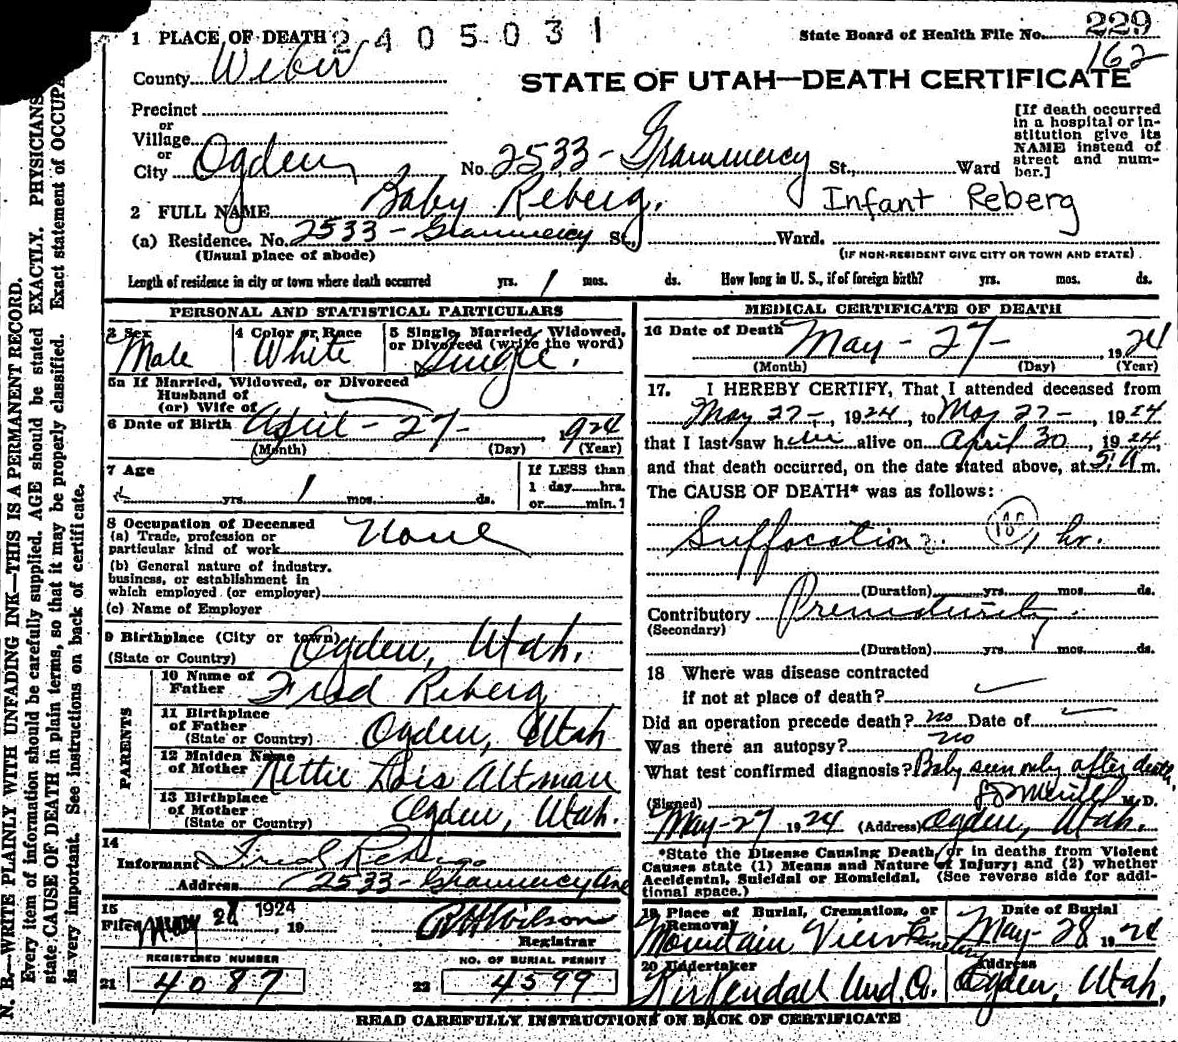 1 PLACE OF DEATH 2405031
State Board of Health File No. 229
162
County Weber
STATE OF UTAH—DEATH CERTIFICATE
Precinct
or
Village
or
City Ogden No. 2533 - Grammercy St., Ward
[If death occurred in a hospital or in-
stitution give its
NAME instead of
street and num-
ber.]
2 FULL NAME Baby Reberg. Infant Reberg
(a) Residence. No. 2533 - Grammercy St., Ward.
(Usual place of abode) (IF NON-RESIDENT GIVE CITY OR TOWN AND STATE)
Length of residence in city or town where death occurred yrs. 1 mos. ds. How long in U. S., if of foreign birth? yrs. mos. ds.
PERSONAL AND STATISTICAL PARTICULARS
3 Sex 4 Color or Race 5 Single, Married, Widowed,
or Divorced (write the word)
Male White Single.
5a If Married, Widowed, or Divorced
Husband of
(or) Wife of
6 Date of Birth April - 27 - 1924
(Month) (Day) (Year)
7 Age If LESS than
1 day hrs.
yrs. 1 mos. ds. or min.?
8 Occupation of Deceased None
(a) Trade, profession or
particular kind of work
(b) General nature of industry,
business, or establishment in
which employed (or employer)
(c) Name of Employer
9 Birthplace (City or town) Ogden, Utah.
(State or Country)
PARENTS
10 Name of
Father Fred Reberg
11 Birthplace
of Father Ogden, Utah
(State or Country)
12 Maiden Name
of Mother Nettie Lois Altman
13 Birthplace
of Mother Ogden, Utah.
(State or Country)
14
Informant Fred Reberg
Address 2533 - Grammercy Ave
15
Filed May 1924, 19
Registrar R H Wilson
REGISTERED NUMBER NO. OF BURIAL PERMIT
21 4087 22 4599
MEDICAL CERTIFICATE OF DEATH
16 Date of Death May - 27 - , 1924
(Month) (Day) (Year)
17. I HEREBY CERTIFY, That I attended deceased from
May 27 -, 1924, to May 27 - 1924
that I last saw him alive on April 30, 1924,
and that death occurred, on the date stated above, at 5 A m.
The CAUSE OF DEATH* was as follows:
Suffocation 1 hr.
(Duration) yrs. mos. ds.
Contributory Prematurity.
(Secondary)
(Duration) yrs. mos. ds.
18 Where was disease contracted
if not at place of death?
Did an operation precede death? no Date of
Was there an autopsy? no
What test confirmed diagnosis? Baby seen only after death.
(Signed) Merrill M.D.
May - 27 1924 (Address) Ogden, Utah.
*State the Disease Causing Death, or in deaths from Violent
Causes state (1) Means and Nature of Injury; and (2) whether
Accidental, Suicidal or Homicidal. (See reverse side for addi-
tional space.)
19 Place of Burial, Cremation, or
Removal Date of Burial
Mountain View Cemetery May - 28 1924
20 Undertaker Address
Kirkendall Und. Co. Ogden, Utah.
READ CAREFULLY INSTRUCTIONS ON BACK OF CERTIFICATE
N. B.—WRITE PLAINLY WITH UNFADING INK—THIS IS A PERMANENT RECORD.
Every item of information should be carefully supplied. AGE should be stated EXACTLY. PHYSICIANS
state CAUSE OF DEATH in plain terms, so that it may be properly classified. Exact statement of OCCUPA
is very important. See instructions on back of certificate.